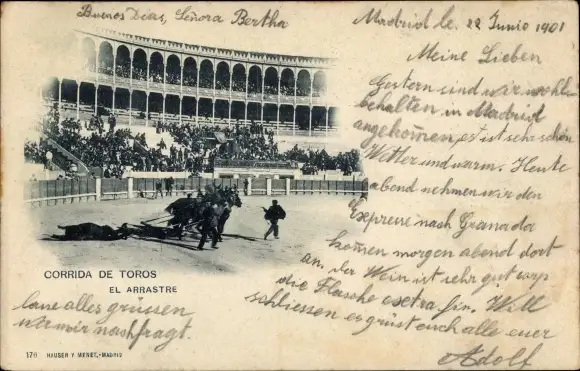 Buenos Dias, Señora Bertha
Madrid le. 22 Junio 1901
Meine Lieben
Gestern sind wir wohl
behalten in Madrid
angekomen, es ist sehr schön
Wetter und warm. Heute
abend nehmen wir den
Exprene nach Granada
komen morgen abend dort
an. der Wein ist sehr gut
die Flasche Will
schliessen es grüst euch alle euer
Adolf
CORRIDA DE TOROS
EL ARRASTRE
alles grüssen
wer mir nachfragt.
176 HAUSER Y MENET.-MADRID